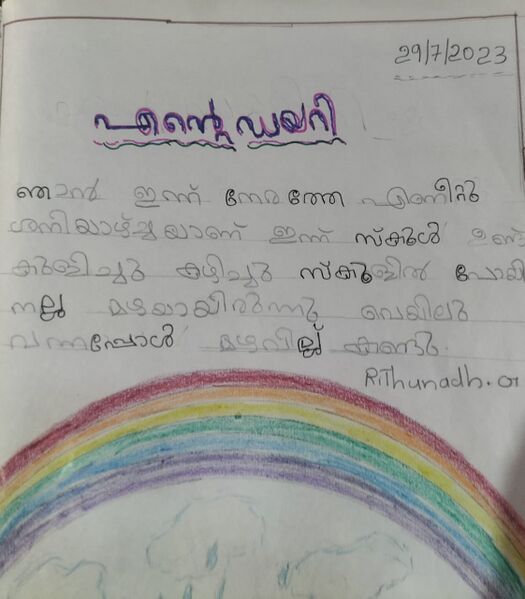 29/7/2023
എന്റെ ഡയറി
ഞാൻ ഇന്ന് നേരത്തേ എണീറ്റു
ശനിയാഴ്ച്ചയാണ് ഇന്ന് സ്കൂൾ ഉണ്ട്
കുളിച്ചു കഴിച്ചു സ്കൂളിൽ പോയി
നല്ല മഴയായിരുന്നു വെയിലു
വന്നപ്പോൾ മഴവില്ല് കണ്ടു.
RiThunadh.